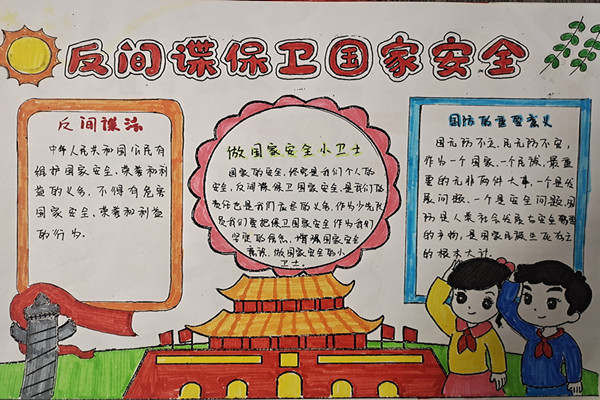 反间谍保卫国家安全
反间谍法
中华人民共和国公民有
维护国家安全、荣誉和利
益的义务，不得有危害
国家安全、荣誉和利益
的行为。
做国家安全小卫士
国家的安全，终究是我们个人的安
全，反间谍保卫国家安全，是我们的
责任也是我们应尽的义务，作为少先队
员我们要把保卫国家安全作为我们
坚定的信念，增强国家安全
意识，做国家安全的小
卫士。
国防的重要意义
国无防不立，民无防不安，
作为一个国家、一个民族，最重
要的无非两件大事，一个是发
展问题，一个是安全问题，国
防是人类社会发展与安全需要
的产物，是国家民族生死存亡
的根本大计。